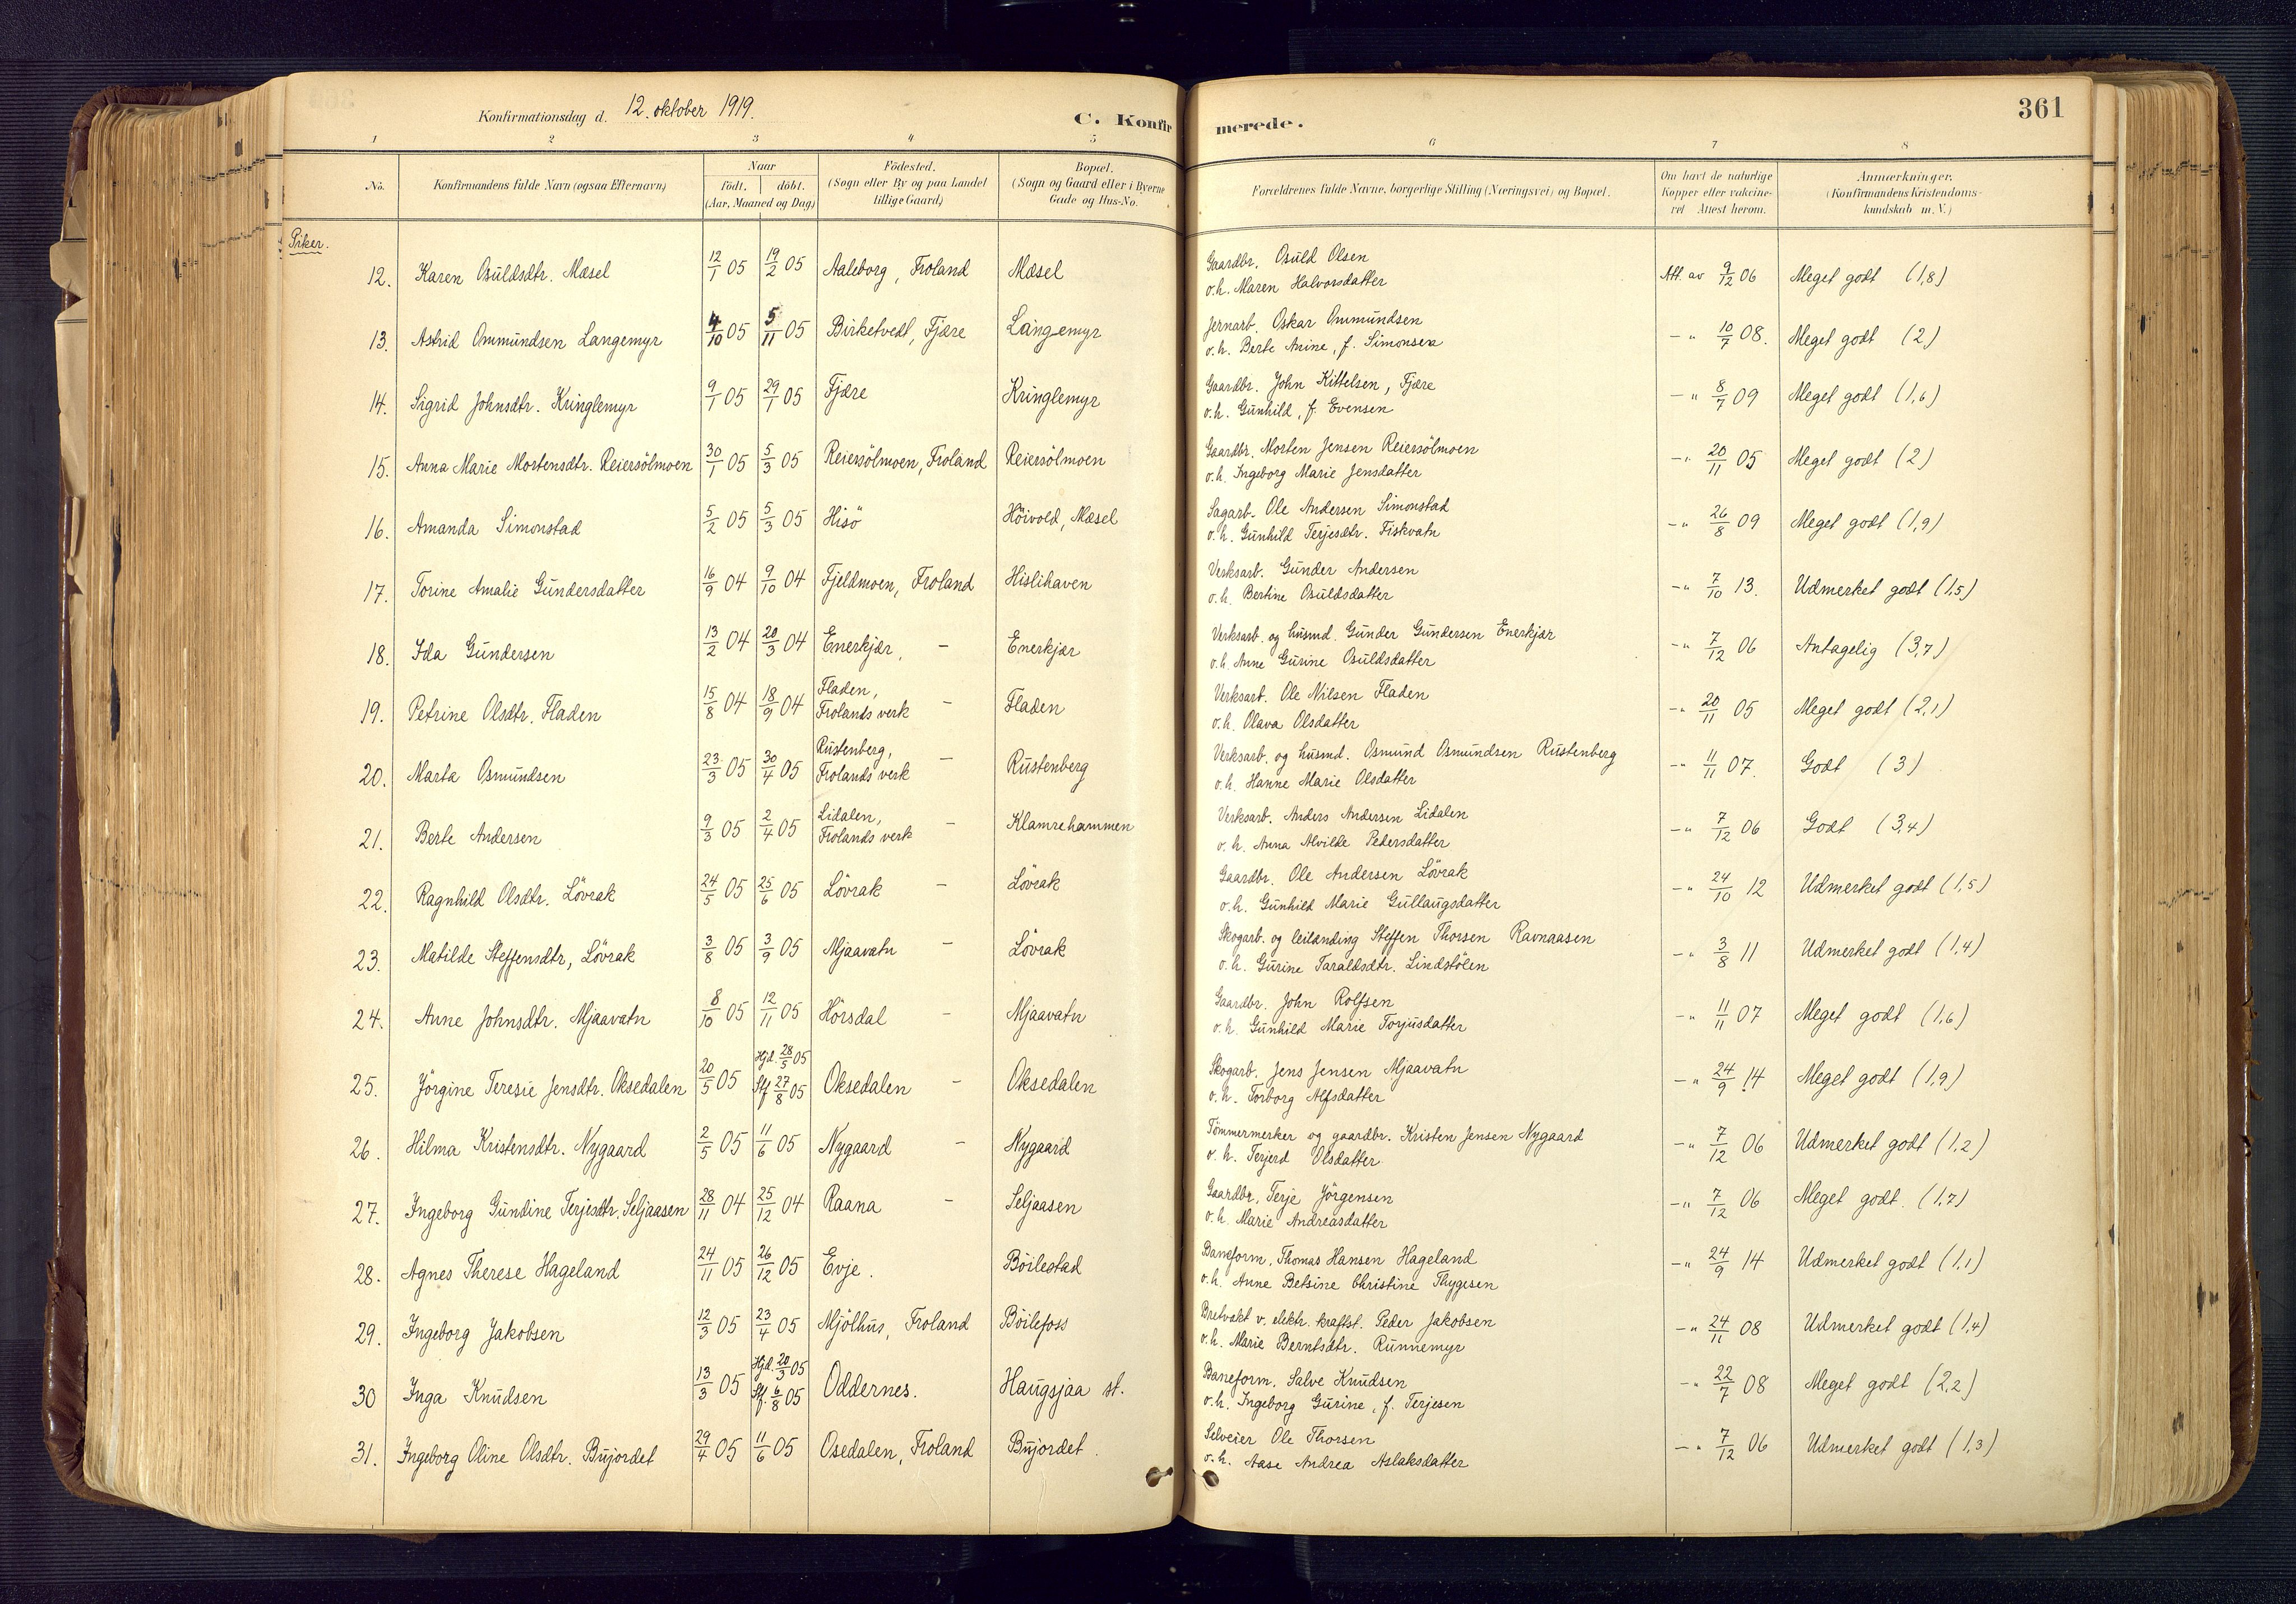 Konfirmationsdag d. 12. oktober 1919.
C. Konfirmerede.
361
1 2 3 4 5 6 7 8
No. Konfirmandens fulde Navn (ogsaa Efternavn) Naar födt. döbt. (Aar, Maaned og Dag) Födested. (Sogn eller By og paa Landet tillige Gaard) Bopæl. (Sogn og Gaard eller i Byerne Gade og Hus-No. Forældrenes fulde Navne, borgerlige Stilling (Næringsvei) og Bopæl. Om havt de naturlige Kopper eller vakcineret Attest herom. Anmærkninger. (Konfirmandens Kristendomskundskab m. V.)
Piker.
12. Karen Osuldsdtr. Mæsel 12/1 05 19/2 05 Aaleborg, Froland Mæsel Gaardbr. Osuld Olsen Att. av 9/12 06 Meget godt (1,8)
o.h. Maren Halvorsdatter
13. Astrid Ommundsen Langemyr 4/10 05 5/11 05 Birketvedt, Fjære Langemyr Jernarb. Oskar Ommundsen -„ 10/7 08. Meget godt (2)
o.h. Berte Anine, f. Simonsen
14. Sigrid Johnsdtr. Kringlemyr 9/1 05 29/1 05 Fjære Kringlemyr Gaardbr. John Kittelsen, Fjære -„ 8/7 09 Meget godt (1,6)
o.h. Gunhild, f. Evensen
15. Anna Marie Mortensdtr. Reiersölmoen 30/1 05 5/3 05 Reiersölmoen, Froland Reiersölmoen Gaardbr. Morten Jensen Reiersölmoen -„ 20/11 05 Meget godt (2)
o.h. Ingeborg Marie Jensdatter
16. Amanda Simonstad 5/2 05 5/3 05 Hisö Höivold, Mæsel Sagarb. Ole Andersen Simonstad -„ 26/8 09 Meget godt (1,9)
o.h. Gunhild Terjesdtr. Fiskvatn
17. Torine Amalie Gundersdatter 16/9 04 9/10 04 Fjeldmoen, Froland Hislihaven Verksarb. Gunder Andersen -„ 7/10 13. Udmerket godt (1,5)
o.h. Bertine Osuldsdatter
18. Ida Gundersen 13/2 04 20/3 04 Enerkjær, - Enerkjær Verksarb. og husmd. Gunder Gundersen Enerkjær -„ 7/12 06 Antagelig (3,7)
o.h. Anne Gurine Osuldsdatter
19. Petrine Olsdtr. Fladen 15/8 04 18/9 04 Fladen, Frolands verk - Fladen Verksarb. Ole Nilsen Fladen -„ 20/11 05 Meget godt (2,1)
o.h. Olava Olsdatter
20. Marta Osmundsen 23/3 05 30/4 05 Rustenberg, Frolands verk - Rustenberg Verksarb. og husmd. Osmund Osmundsen Rustenberg -„ 11/11 07. Godt (3)
o.h. Hanne Marie Olsdatter
21. Berte Andersen 9/3 05 2/4 05 Lidalen, Frolands verk - Klamrehammen Verksarb. Anders Andersen Lidalen -„ 7/12 06 Godt (3,4)
o.h. Anna Alvilde Pedersdatter
22. Ragnhild Olsdtr. Lövrak 24/5 05 25/6 05 Lövrak - Lövrak Gaardbr. Ole Andersen Lövrak -„ 24/10 12 Udmerket godt (1,5)
o.h. Gunhild Marie Gullaugsdatter
23. Matilde Steffensdtr, Lövrak 3/8 05 3/9 05 Mjaavatn - Lövrak Skogarb. og leilænding Steffen Thorsen Ravnaasen -„ 3/8 11 Udmerket godt (1,4)
o.h. Gurine Taraldsdtr. Lindstölen
24. Anne Johnsdtr. Mjaavatn 8/10 05 12/11 05 Hörsdal - Mjaavatn Gaardbr. John Rolfsen -„ 11/11 07 Meget godt (1,6)
o.h. Gunhild Marie Torjusdatter
25. Jörgine Teresie Jensdtr. Oksedalen 20/5 05 Hjd. 28/5 05 Stf. 27/8 05 Oksedalen - Oksedalen Skogarb. Jens Jensen Mjaavatn -„ 24/9 14 Meget godt (1,9)
o.h. Torborg Alfsdatter
26. Hilma Kristensdtr. Nygaard 2/5 05 11/6 05 Nygaard - Nygaard Tömmermerker og gaardbr. Kristen Jensen Nygaard -„ 7/12 06 Udmerket godt (1,2)
o.h. Terjerd Olsdatter
27. Ingeborg Gundine Terjesdtr. Seljaasen 28/11 04 25/12 04 Raana - Seljaasen Gaardbr. Terje Jörgensen -„ 7/12 06 Meget godt. (1,7)
o.h. Marie Andreasdatter
28. Agnes Therese Hageland 24/11 05 26/12 05 Evje. Böilestad Baneform. Thomas Hansen Hageland -„ 24/9 14 Udmerket godt (1,1)
o.h. Anne Betsine Christine Thygesen
29. Ingeborg Jakobsen 12/3 05 23/4 05 Mjölhus, Froland Böilefoss Bretvakt v. elektr. kraftst. Peder Jakobsen -„ 24/11 08 Udmerket godt (1,4)
o.h. Marie Berntsdtr. Runnemyr
30 Inga Knudsen 13/3 05 Hjd. 20/3 05 Stf. 6/8 05 Oddernes. Haugsjaa st. Baneform. Salve Knudsen -„ 22/7 08 Meget godt (2,2)
o.h. Ingeborg Gurine, f. Terjesen
31. Ingeborg Oline Olsdtr. Bujordet 29/4 05 11/6 05 Osedalen, Froland Bujordet. Selveier Ole Thorsen -„ 7/12 06 Udmerket godt (1,3)
o.h. Aase Andrea Aslaksdatter